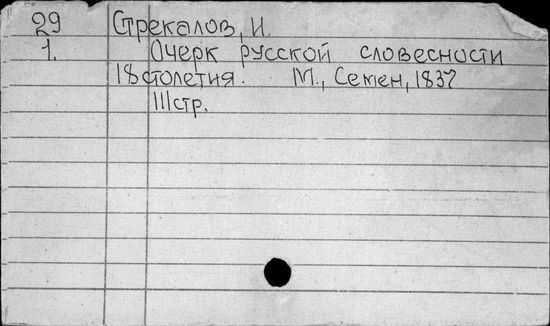 29 Стрекалов, И.
1. Очерк русской словесности
18 столетия. М., Семен, 1837
111стр.